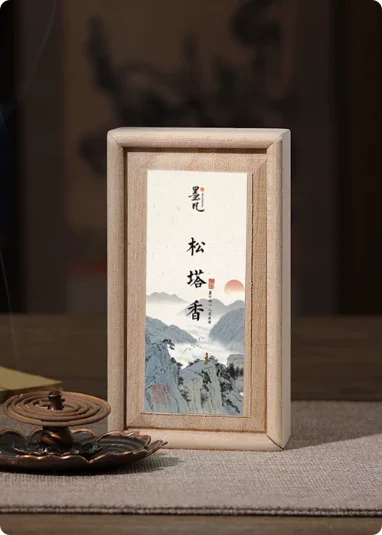 墨凡
松塔香